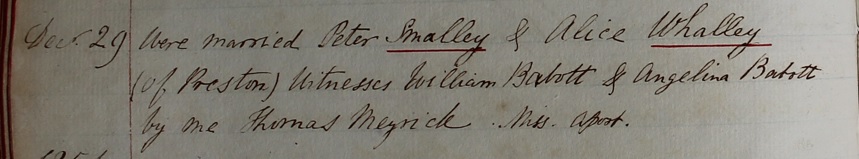 Dec. 29 Were married Peter Smalley & Alice Whalley
(of Preston) Witnesses William Babott & Angelina Babott
by me Thomas Meyrick. Miss. Apost.